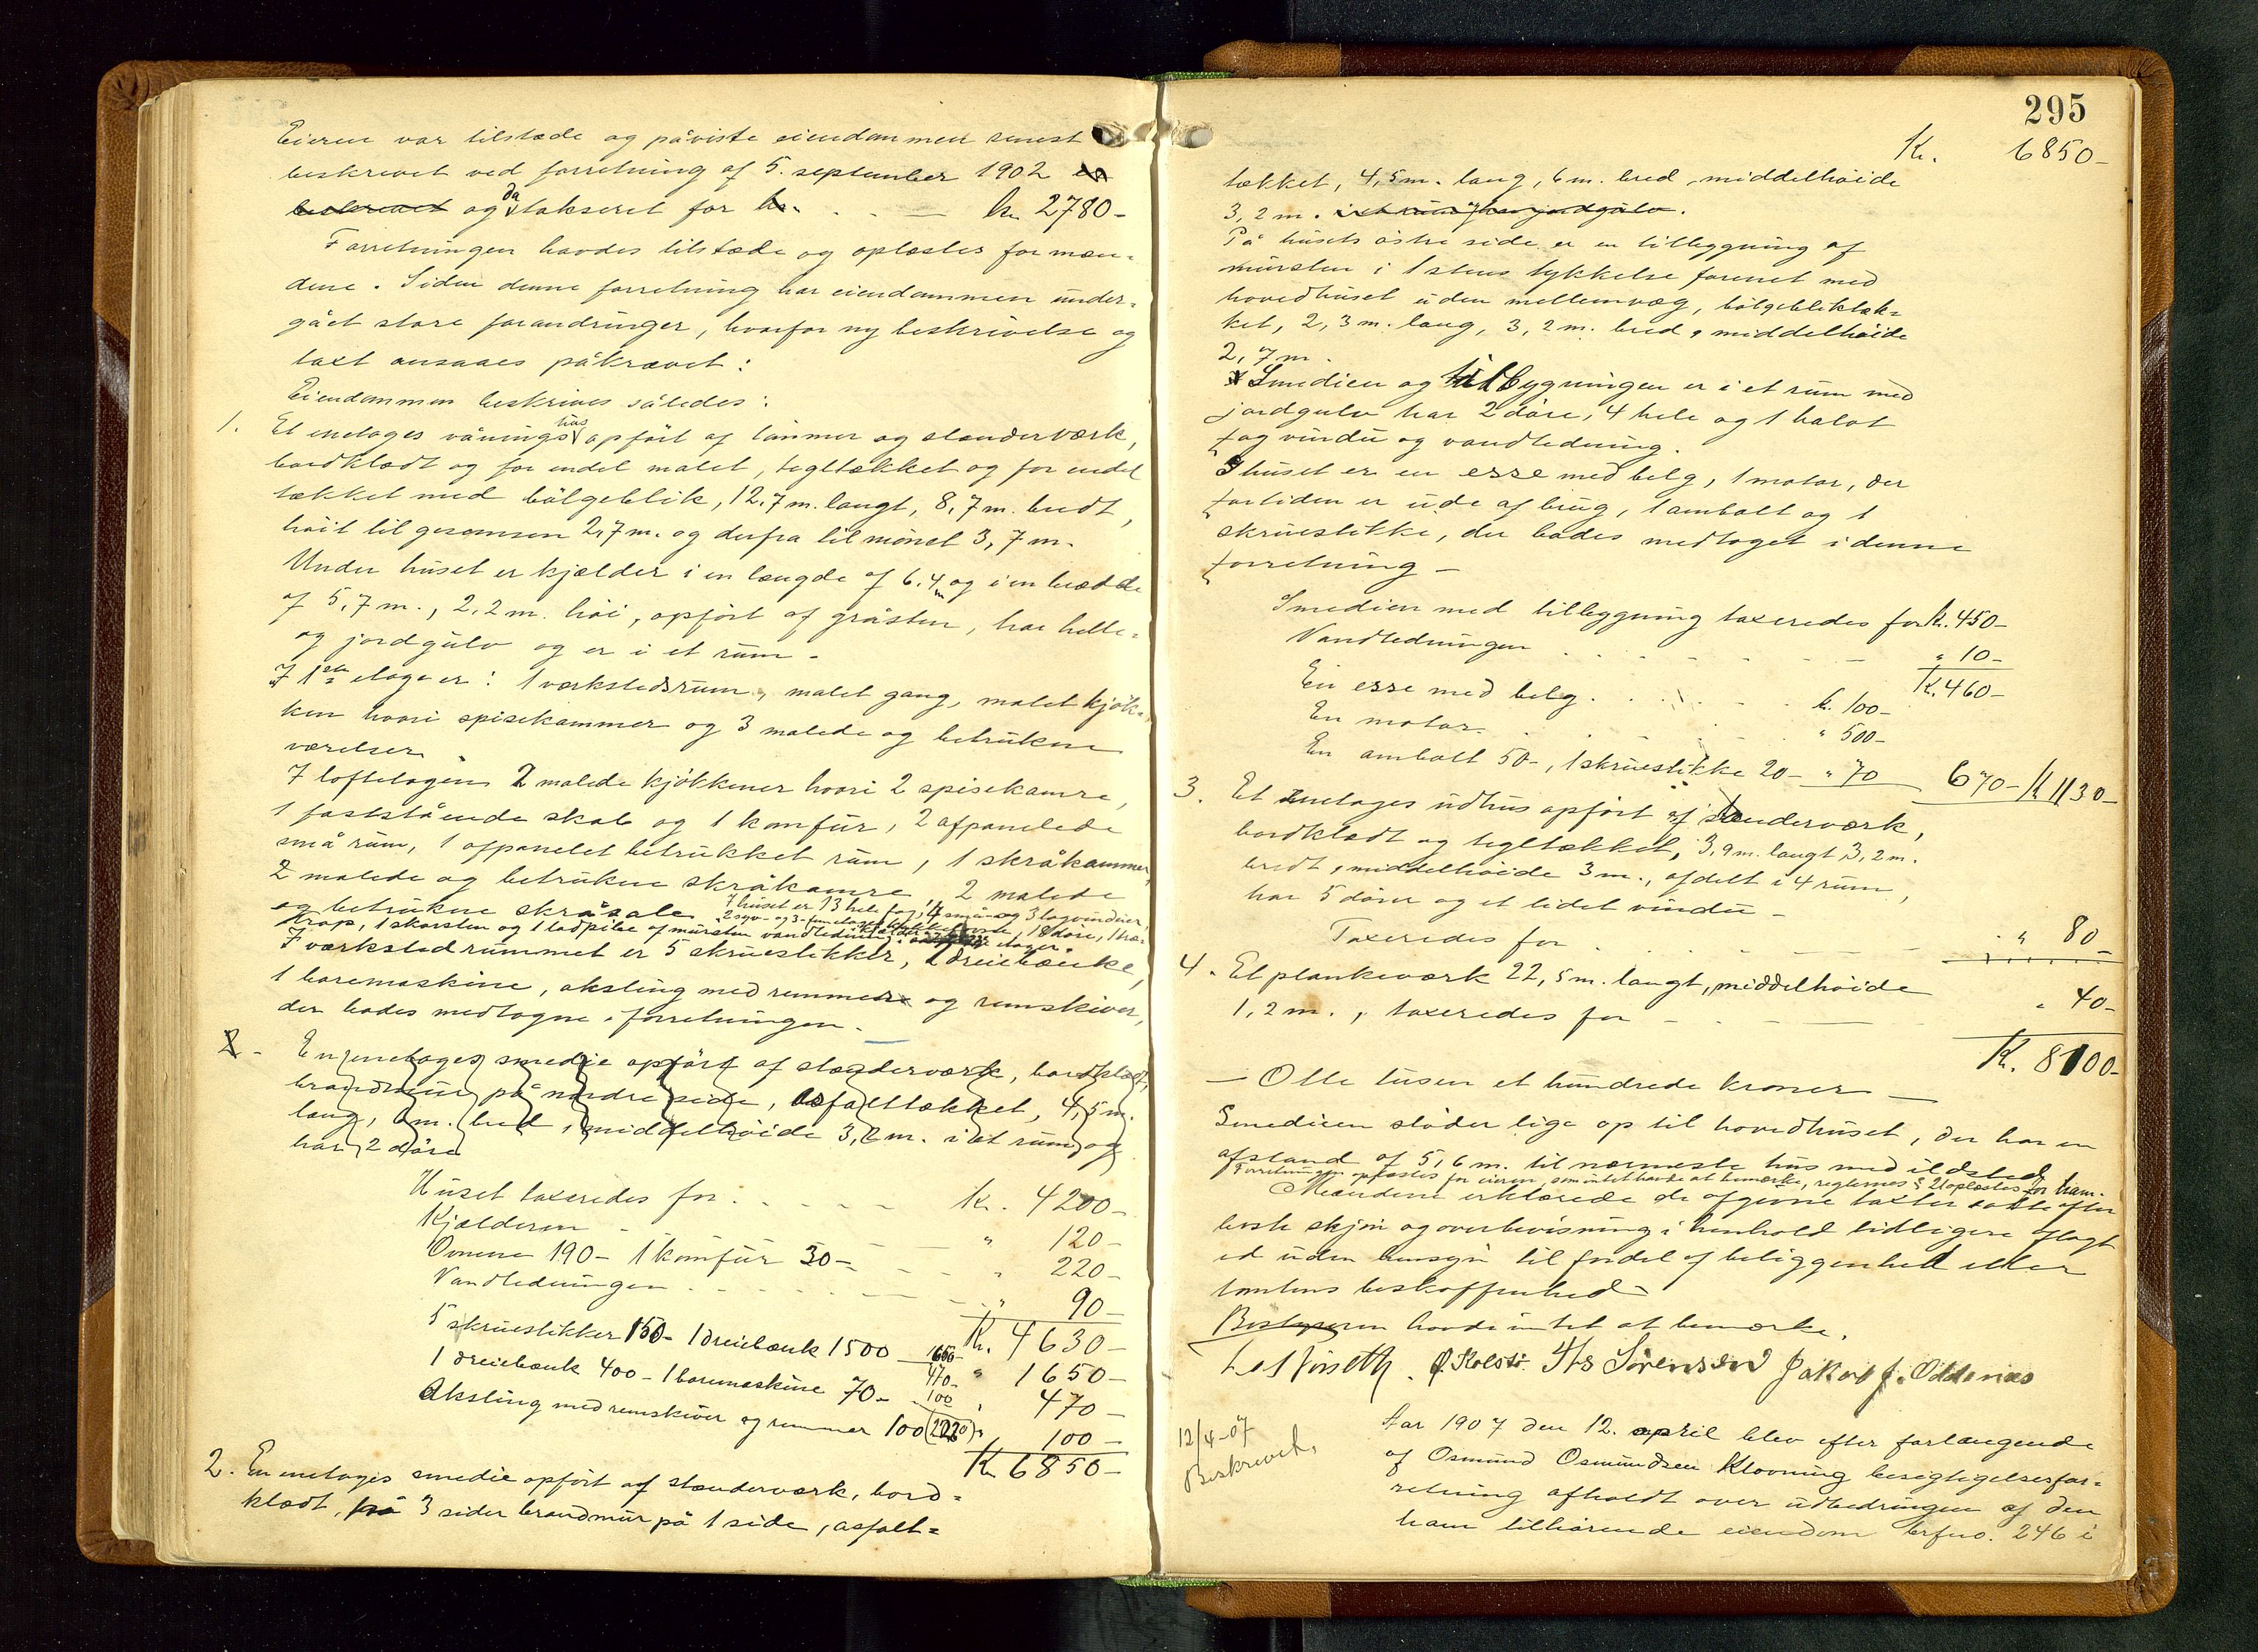 Eieren var tilstæde og påviste eiendommen senest
beskrevet ved forretning af 5. september 1902 en
beskrevet og da takseret for kr. . . — kr. 2780-
Forretningen havdes tilstæde og oplæstes for mæn-
dene. Siden denne forretning har eiendommen under-
gået store forandringer, hvorfor ny beskrivelse og
taxt ansaaes påkrævet:
Eiendommen beskrives således:
1. Et enetages vånings hus opført af tømmer og stenderværk,
bordklædt og for endel malet, tegltækket og for endel
tækket med bølgeblik, 12,7 m. langt, 8,7 m. bredt,
høit til gesomsen 2,7 m. og derfra til mønet 3,7 m.
Under huset er kjælder i en længde af 6.4 m og i en bredde
af 5,7 m., 2,2 m. høi, opført af gråsten, har helle-
og jordgulv og er i et rum.
I 1ste etage er: 1 værkstedsrum, malet gang, malet kjøk-
ken hvori spisekammer og 3 malede og betrukne
værelser.
I loftetagen 2 malede kjøkkener hvori 2 spisekamre,
1 faststående skab og 1 komfur, 2 afpanelede
små rum, 1 afpanelet betrukket rum, 1 skråkammer,
2 malede og betrukne skråkamre, 2 malede
og betrukne skråsale. I huset er 13 hele fag, 4 små- og 3 tagvinduer,
2 syv- og 3- femetages 18 døre, 1 træ-
trap, 1 skorsten og 1 ladpibe af mursten vandledning i etager.
I værkstedrummet er 5 skruestikker, 2 dreiebænke,
1 boremaskine, aksling med remmer og remskiver,
der bades medtagne i forretningen.
2. En enetages smedie opført af stenderværk, bordklædt,
brandmur på nordre side, asfalttækket, 4,5 m.
lang, 6 m. bred, middelhøide 3,2 m. i et rum og
har 2 døre
Huset taxeredes for . . . . — kr. 4200-
Kjælderen — " 120-
Ovnene 190- 1 komfur 30- — " 220-
Vandledningen . . . . — " 90-
Kr. 4630-
5 skruestikker 150- 1 dreiebænk 1500 1650- " 1650-
1 dreiebænk 400- 1 boremaskine 70- 470- " 470-
Aksling med remskiver og remmer 100 100 (2220) " 100-
Kr 6850-
2. En enetages smedie opført af stenderværk, bord-
klædt, på 3 sider brandmur på 1 side, asfalt-
295
Kr. 6850-
tækket, 4,5 m. lang, 6 m. bred, middelhøide
3,2 m. i et rum har jordgulv.
På husets østre side er en tilbygning af
mursten i 1 stens tykkelse forenet med
hovedhuset uden mellemvæg, bølgebliktæk-
ket, 2,3 m. lang, 3,2 m. bred, middelhøide
2,7 m.
Smedien og tilbygningen er i et rum med
jordgulv har 2 døre, 4 hele og 1 halvt
fag vindu og vandledning.
I huset er en esse med belg, 1 motor, der
fortiden er ude af brug, 1 ambolt og 1
skruestikke, der bades medtaget i denne
forretning -
Smedien med tilbygning taxeredes for kr. 450-
Vandledningen . . . . — " 10-
Kr. 460-
En esse med belg . . . . kr. 100-
En motor . . . . " 500-
En ambolt 50-, 1 skruestikke 20- " 70 670- Kr 1130-
3. Et enetages udhus opført af stenderværk,
bordklædt og tegltækket, 3,9 m. langt 3,2 m.
bredt, middelhøide 3 m., afdelt i 4 rum,
har 5 døre og et lidet vindu -
Taxeredes for . . . — " 80-
4. Et plankeværk 22,5 m. langt, middelhøide
1,2 m., taxeredes for — " 40-
Kr. 8100-
— Otte tusen et hundrede kroner —
Smedien støder lige op til hovedhuset, der har en
afstand af 5,6 m. til nærmeste hus med ildsted
Forretningen oplæstes for eieren, som intet havde at bemærke, reglernes § 21 oplæstes for ham.
Mændene erklærede de afgivne taxter satte efter
beste skjøn og overbevisning i henhold tidligere aflagt
ed uden hensyn til fordel af beliggenhed eller
tomtens beskaffenhed
Bestyreren havde intet at bemærke.
Ø. Kolstø. Hs Sørensen Jakob J. Oddenæs
12/4-07
Beskrevet.
Aar 1907 den 12. april blev efter forlangende
af Osmund Osmundsen Klovning besigtigelsesfor-
retning afholdt over udbedringen af den
ham tilhørende eiendom brfno. 246 i